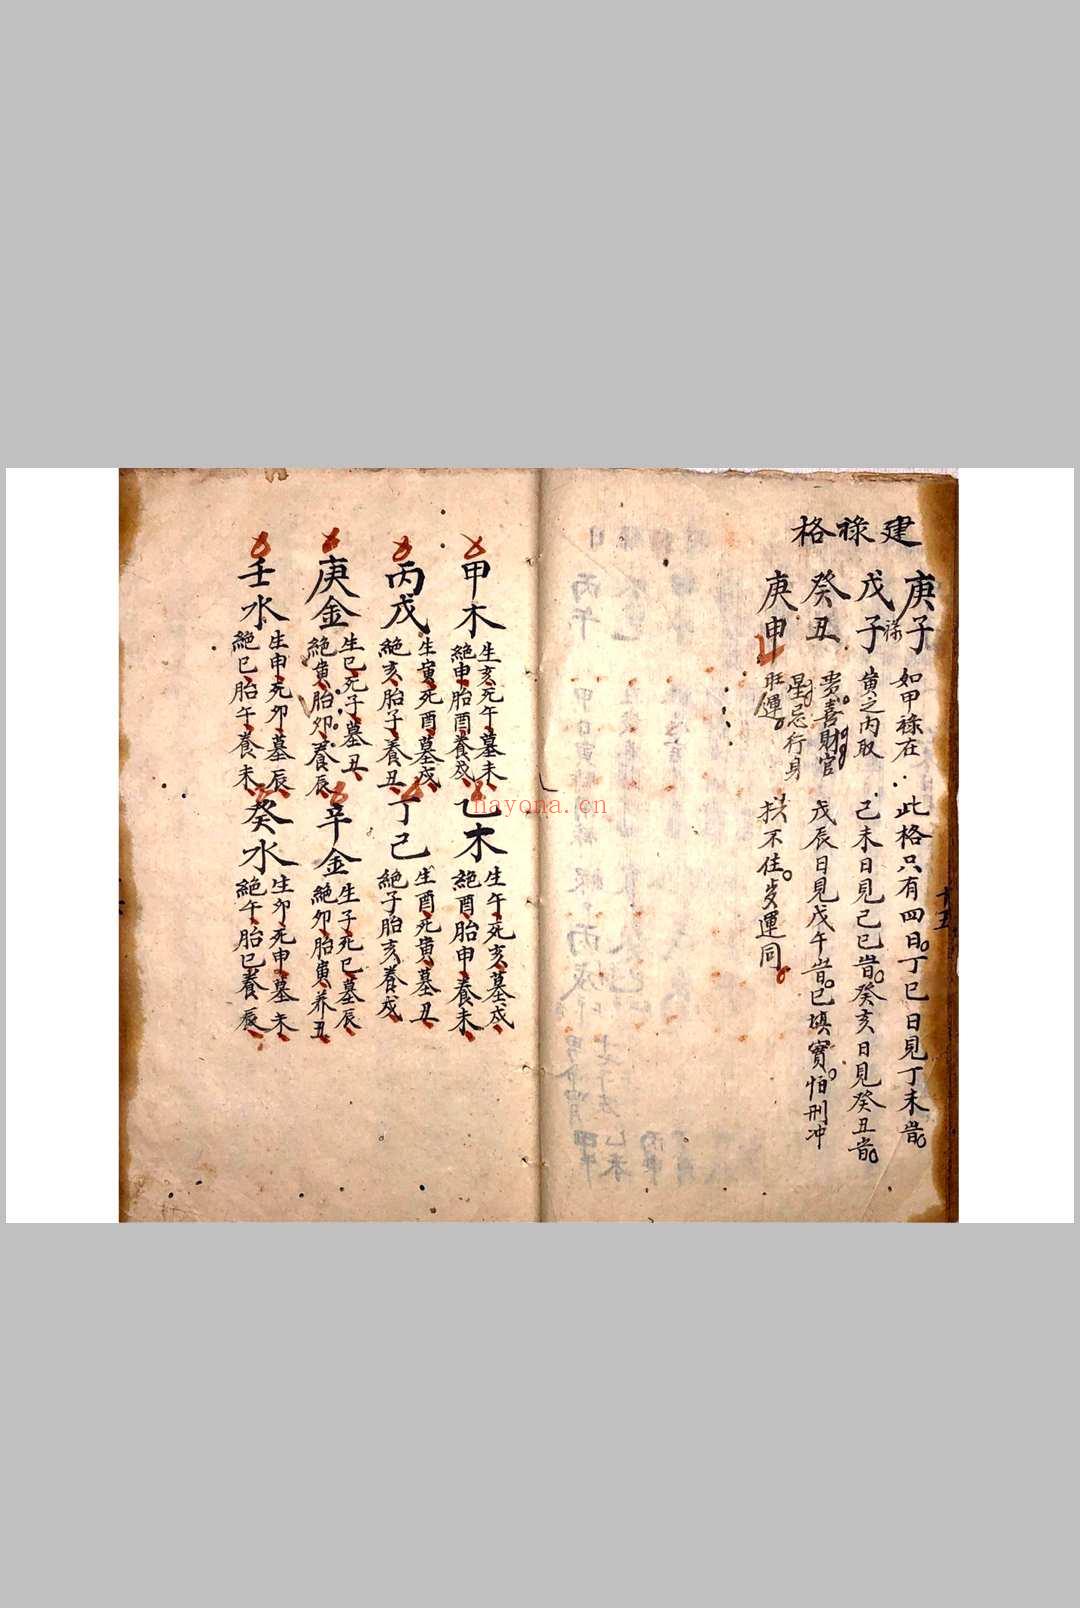 建祿格
庚子 如甲祿在 此格只有四日丁巳日見丁未皆
戊子 祿
寅之內取 己未日見己巳皆癸亥日見癸丑皆
癸丑 貴喜財官 戊辰日見戊午皆巳填實怕刑冲
星忌行身
庚申 旺運 扶不住歲運同
十五
甲木 生亥死午墓未
絕申胎酉養戌
乙木 生午死亥墓戌
絕酉胎申養未
丙戊 生寅死酉墓戌
絕亥胎子養丑
丁己 生酉死寅墓丑
絕子胎亥養戌
庚金 生巳死子墓丑
絕寅胎卯養辰
辛金 生子死巳墓辰
絕卯胎寅养丑
壬水 生申死卯墓辰
絕巳胎午養未
癸水 生卯死申墓未
絕午胎巳養辰
hayona.cn